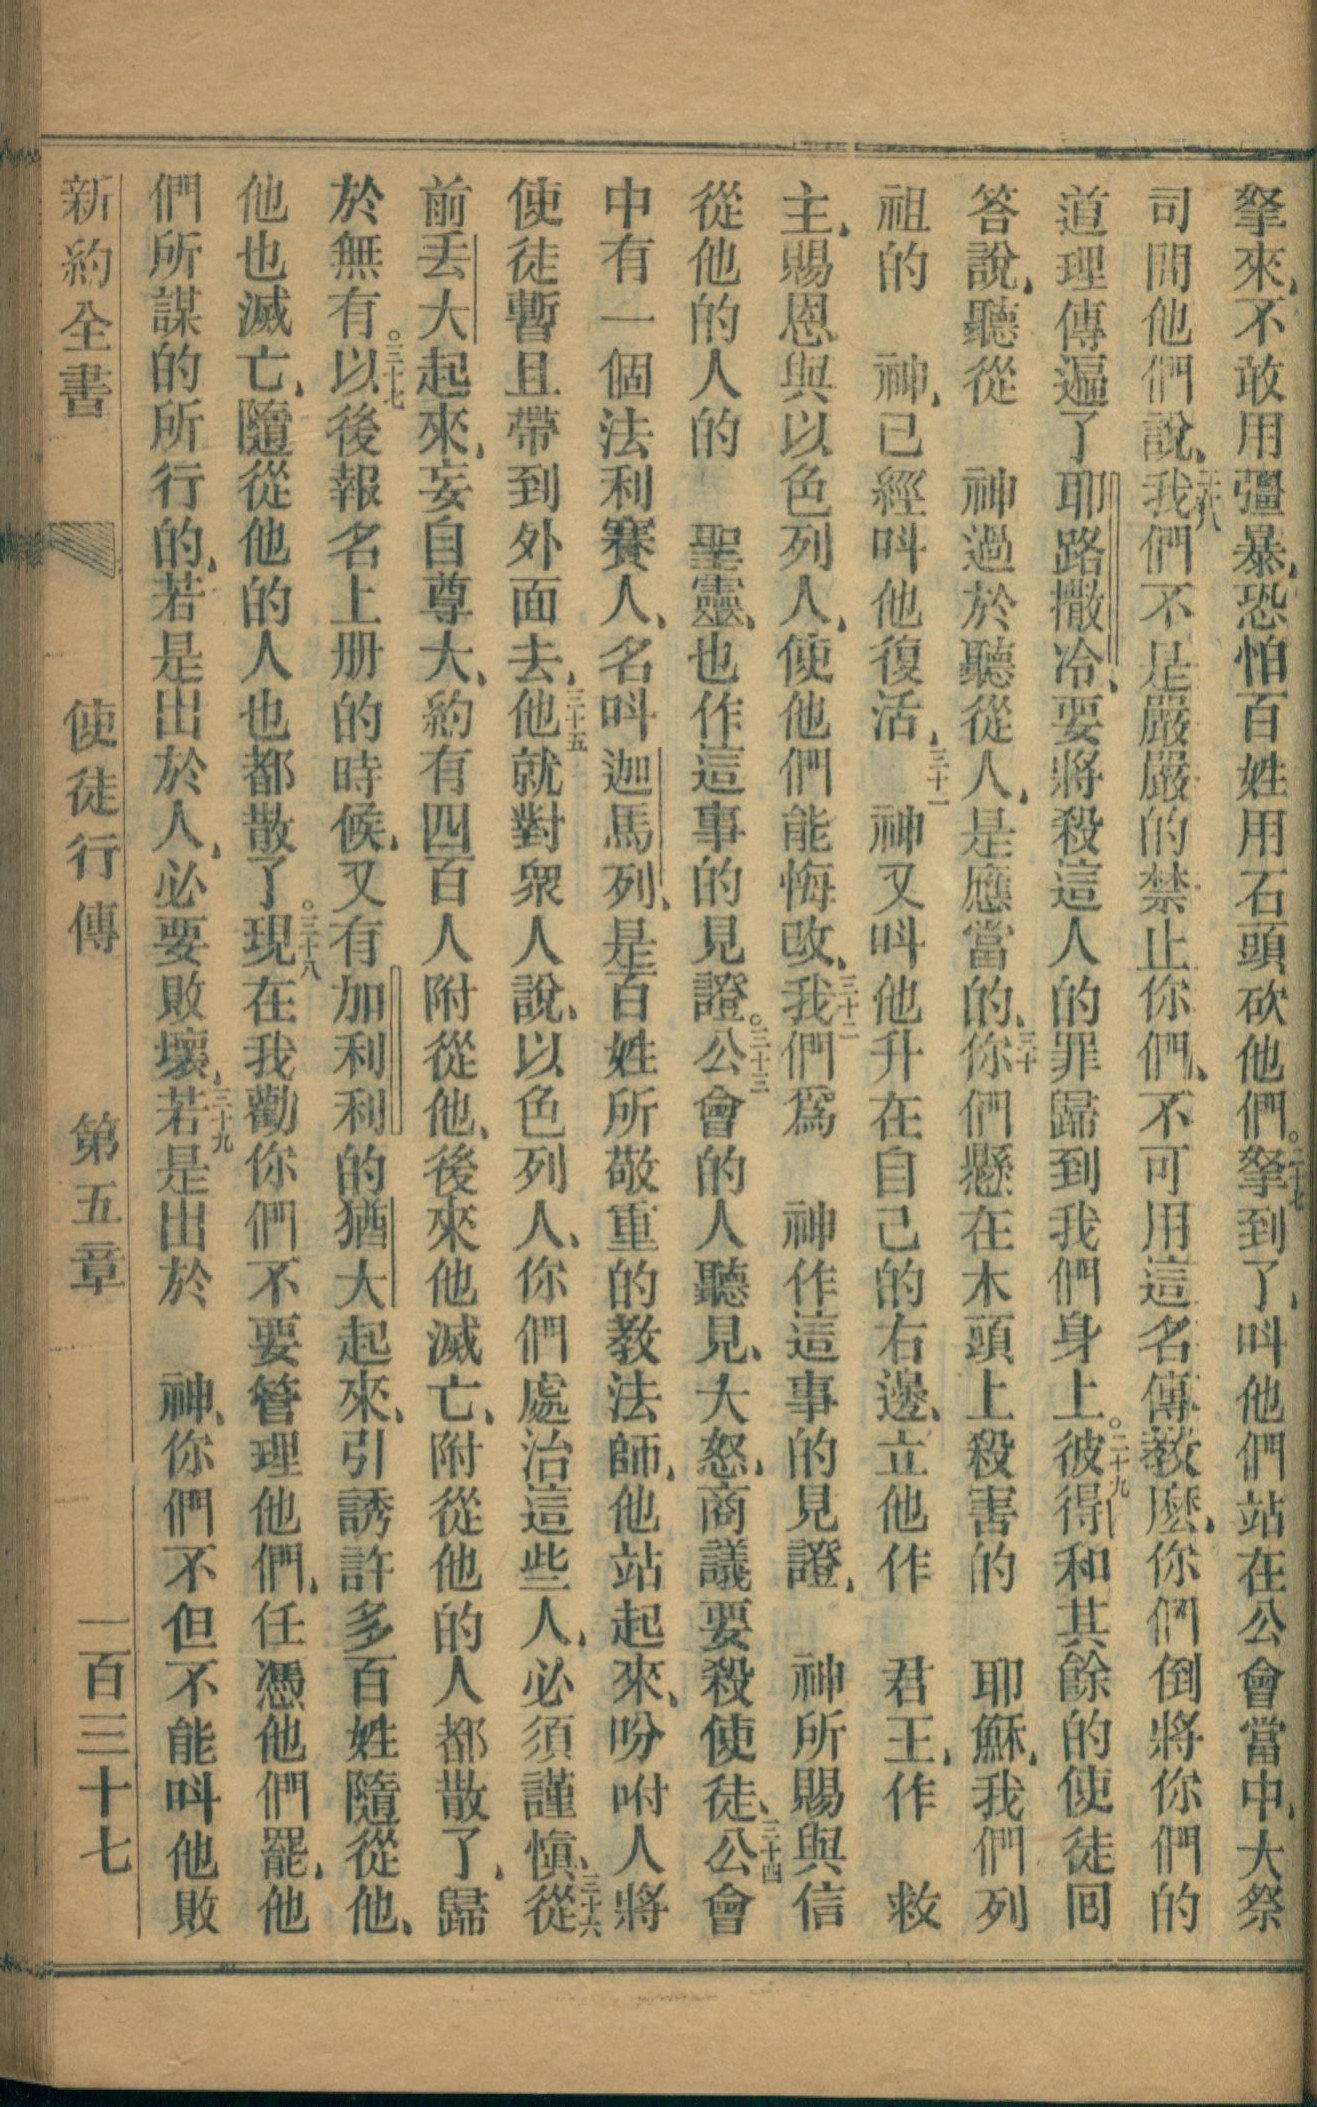 拏來、不敢用彊暴、恐怕百姓用石頭砍他們。二十七拏到了、叫他們站在公會當中、大祭
司問他們說、二十八我們不是嚴嚴的禁止你們、不可用這名傳教麽、你們倒將你們的
道理傳遍了耶路撒冷、要將殺這人的罪歸到我們身上。二十九彼得和其餘的使徒回
答說、聽從　神過於聽從人、是應當的、三十你們懸在木頭上殺害的　耶穌、我們列
祖的　神、已經呌他復活、三十一　神又呌他升在自己的右邊、立他作　君王、作　救
主、賜恩與以色列人、使他們能悔改、三十二我們爲　神作這事的見證、　神所賜與信
從他的人的　聖靈、也作這事的見證。三十三公會的人聽見、大怒、商議要殺使徒、三十四公會
中有一個法利賽人、名呌迦馬列、是百姓所敬重的教法師、他站起來、吩咐人將
使徒暫且帶到外面去、三十五他就對眾人說、以色列人、你們處治這些人、必須謹愼、三十六從
前丟大起來、妄自尊大、約有四百人附從他、後來他滅亡、附從他的人都散了、歸
於無有。三十七以後報名上册的時候、又有加利利的猶大起來、引誘許多百姓隨從他、
他也滅亡、隨從他的人也都散了。三十八現在我勸你們不要管理他們、任憑他們罷、他
們所謀的所行的、若是出於人、必要敗壞、三十九若是出於　神、你們不但不能呌他敗
新約全書　使徒行傳　第五章　一百三十七